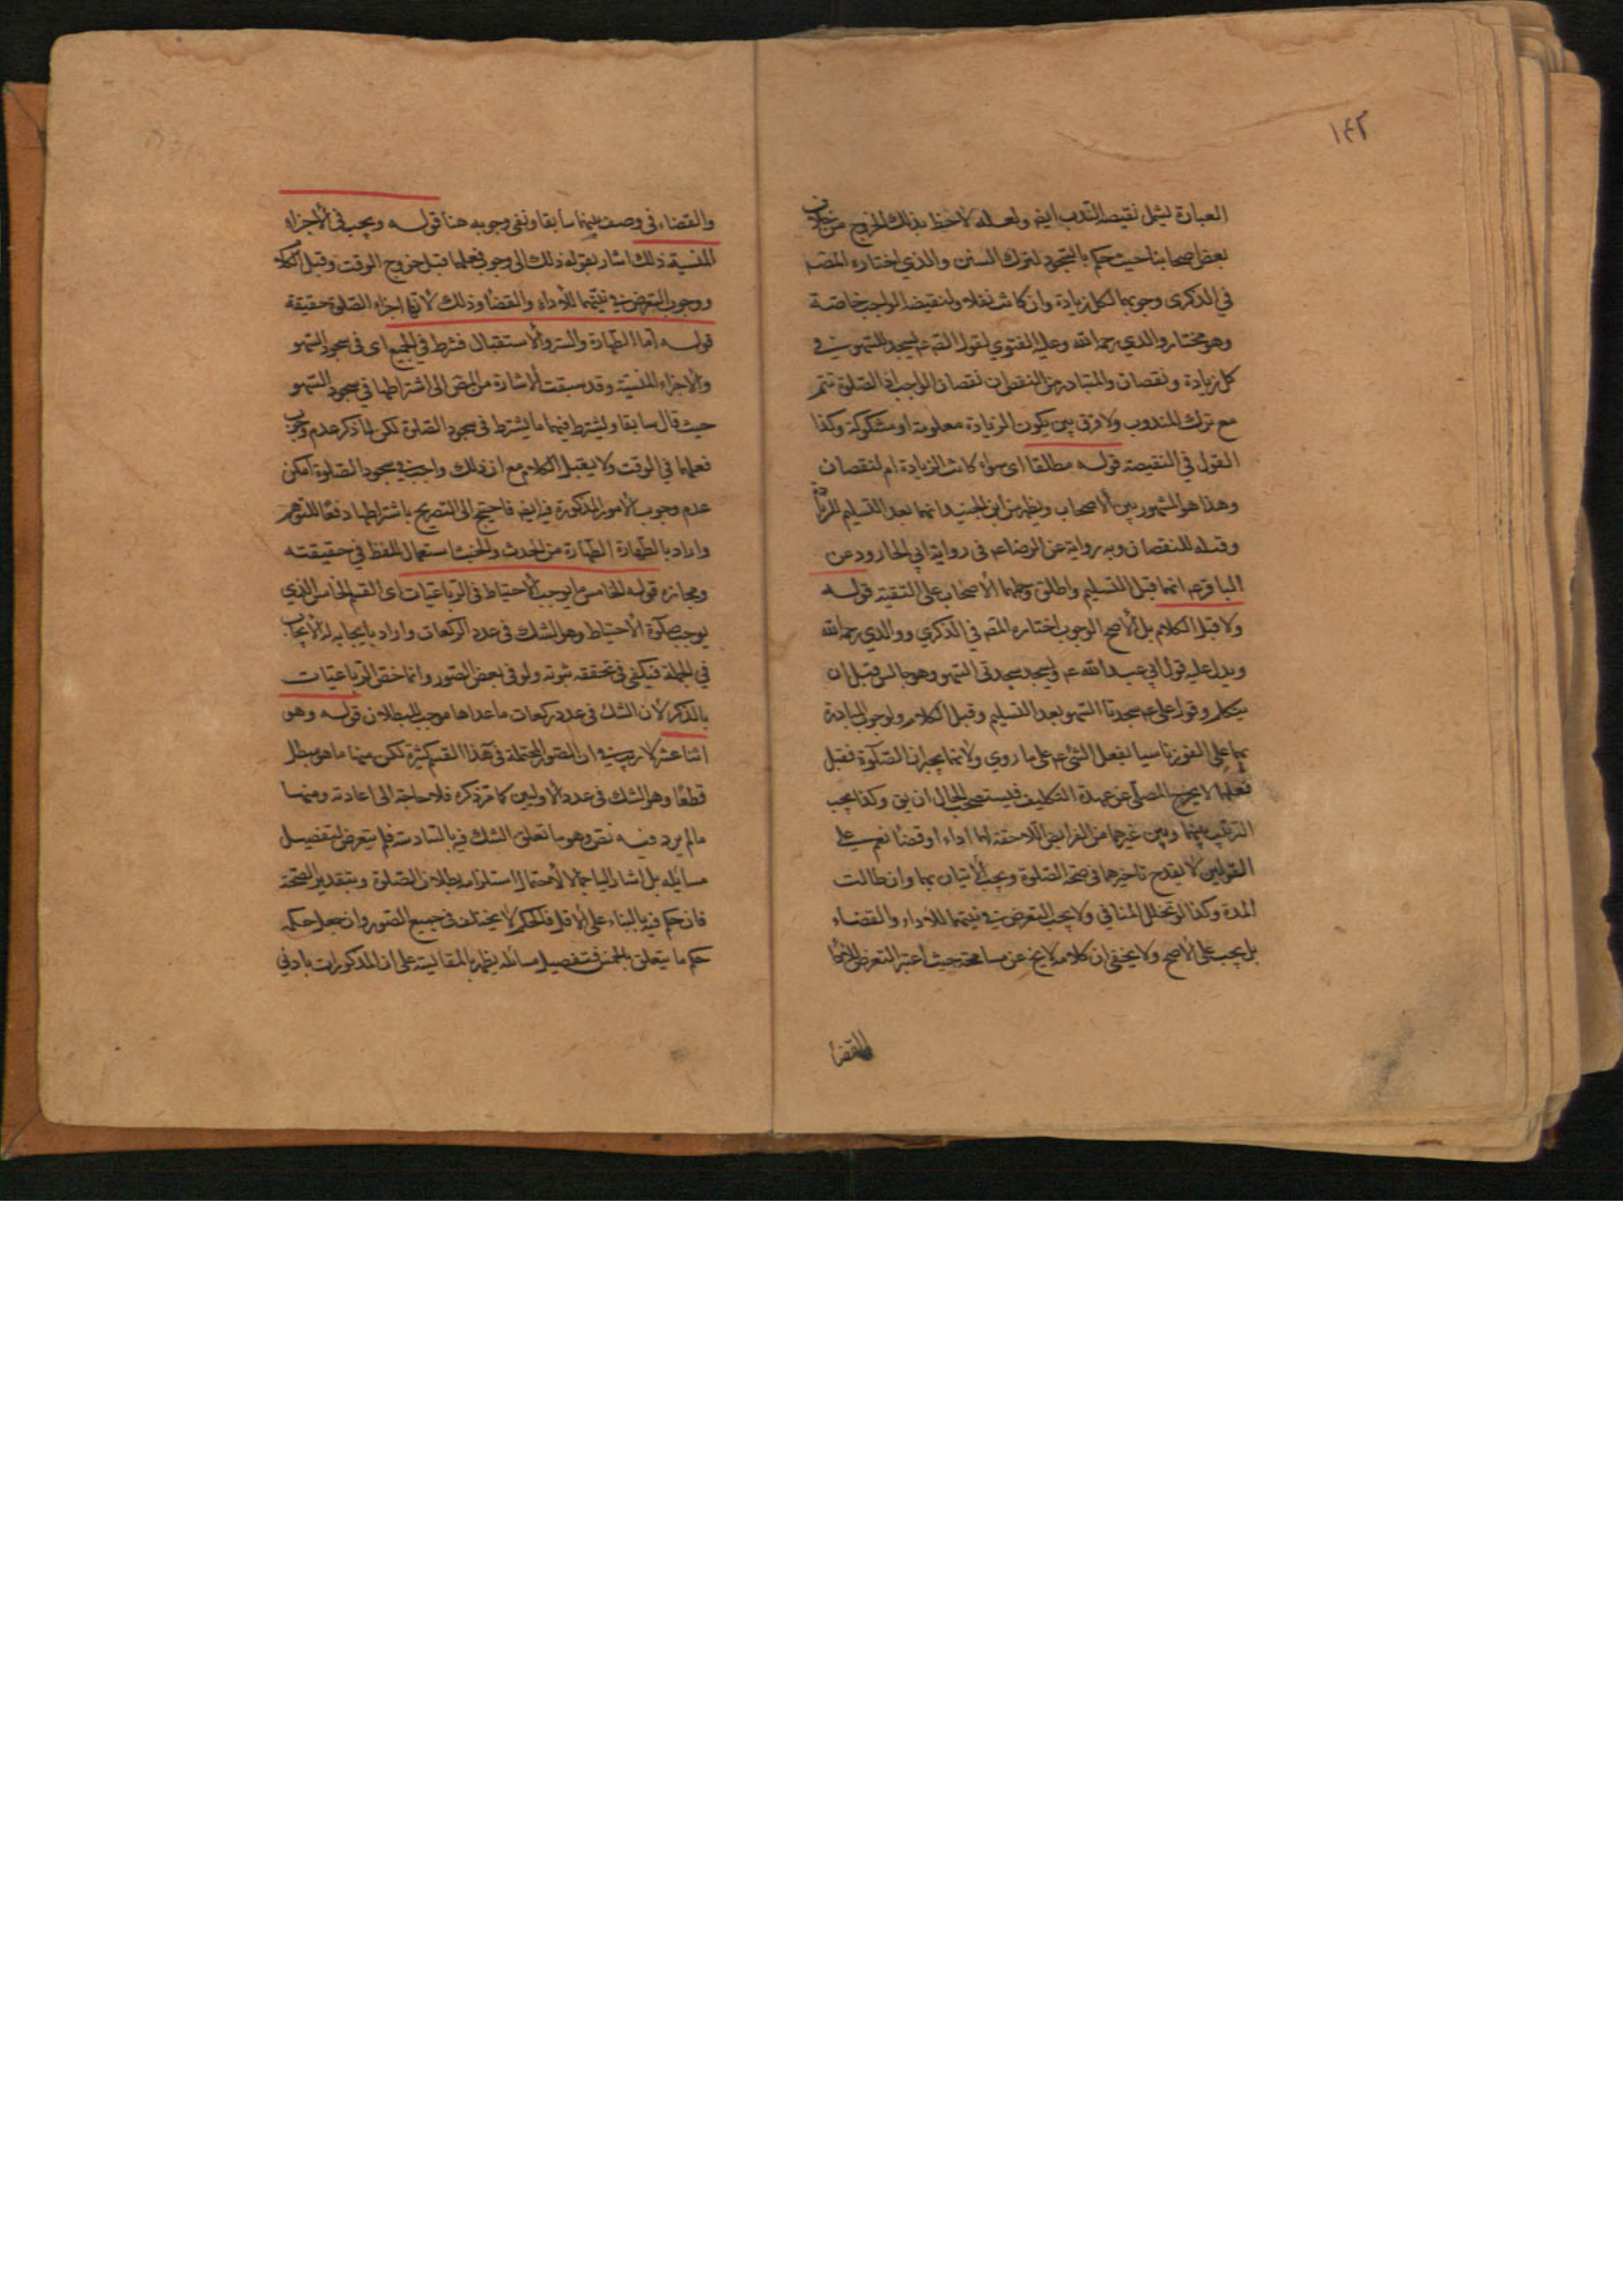 ١٤٢
العبارة يشمل نقيصة الندب ايض ولعله لاحظ بذلك الخروج من خلاف
بعض اصحابنا حيث حكم بالسجود لترك السنن والذي اختاره المص
في الذكرى وجوبهما لكل زيادة وان كانت نفلا ولنقيضه الواجب خاصة
وهو مختار والدي رحمه الله وعليه الفتوى لقول الص عم تسجد للسهو في
كل زيادة ونقصان والمتبادر من النقصان نقصان الواجب اذ الصلوة تتم
مع ترك المندوب ولا فرق بين يكون الزيادة معلومة او مشكوكة وكذا
القول في النقيصة قوله مطلقا اى سواء كانت الزيادة ام لنقصان
وهذا هو المشهور بين الاصحاب ويظهر من ابن الجنيد انهما بعد التسليم للزيادة
وقبله للنقصان وبه رواية عن الرضا عم في رواية ابي الجارود عن
الباقر عم انهما قبل التسليم واطلق وحملها الاصحاب على التقية قوله
ولا قبل الكلام بل الاصح الوجوب اختاره المص في الذكرى ووالدي رحمه الله
ويدل عليه قول ابي عبد الله عم وليسجد سجدتى السهو وهو جالس قبل ان
يتكلم وقول على عم سجدتا السهو بعد التسليم وقبل الكلام ولوجوب المبادرة
بهما على الفور تاسيا بفعل النبي عم على ما روي ولانهما يجبران الصلوة فقبل
فعلهما لا يخرج المصلى عن عهدة التكليف فليستصحب الحال ان يق وكذا يجب
الترتيب بينهما وبين غيرهما من الفرايض اللاحقة لهما اداء او قضا نعم على
القولين لا يقدح تاخيرهما في صحة الصلوة ويجب الاتيان بهما وان طالت
المدة وكذا لو تخلل المنافي ولا يجب التعرض في نيتهما للاداء والقضاء
بل يجب على الاصح ولا يخفى ان كلامه لا يخ عن مسامحة حيث اعتبر التعرض للاداء
والقضا
والقضاء في وصف نيتهما سابقا ونفى وجوبه هنا قوله ويجب في الاجزاء
المنسية ذلك اشار بقوله ذلك الى وجوب فعلها قبل خروج الوقت وقبل الكلام
ووجوب التعرض في نيتهما للاداء والقضا وذلك لانها اجزاء الصلوة حقيقة
قوله اما الطهارة والستر والاستقبال فشرط في الجميع اى في سجود السهو
والاجزاء المنسية وقد سبقت الاشارة من المص الى اشتراطها في سجود السهو
حيث قال سابقا ويشترط فيهما ما يشترط في سجود الصلوة لكن لما ذكر عدم وجوب
فعلهما في الوقت ولا يقبل الكلام مع ان ذلك واجب في سجود الصلوة امكن
عدم وجوب الامور المذكورة فيه ايض فاحتيج الى التصريح باشتراطها دفعا للتوهم
واراد بالطهارة الطهارة من الحدث والخبث استعمال للفظ في حقيقته
ومجازه قوله الخامس ما يوجب الاحتياط في الرباعيات اى القسم الخامس الذي
يوجب صلوة الاحتياط وهو الشك في عدد الركعات واراد بايجابه له الايجاب
في الجملة فيكفى في تحققه ثبوته ولو في بعض الصور وانما خص الرباعيات
بالذكر لان الشك في عدد ركعات ما عداها موجب للبطلان قوله وهو
اثنا عشر لا ريب في ان الصور المحتملة في هذا القسم كثيرة لكن منها ما هو مبطل
قطعا وهو الشك في عدد الاوليين كما مر ذكره فلا حاجة الى اعادته ومنها
ما لم يرد فيه نص وهو ما تعلق الشك فيه بالسادسة فلم يتعرض لتفصيل
مسائله بل اشار اليها اجمالا لاحتمال استلزامه بطلان الصلوة وبتقدير الصحة
فان حكم فيه بالبناء على الاقل فالحكم لا يختلف في جميع الصور وان جعل حكمه
حكم ما يتعلق بالخمس فتفصيل مسائله يظهر بالمقايسة على ان المذكورات بادني